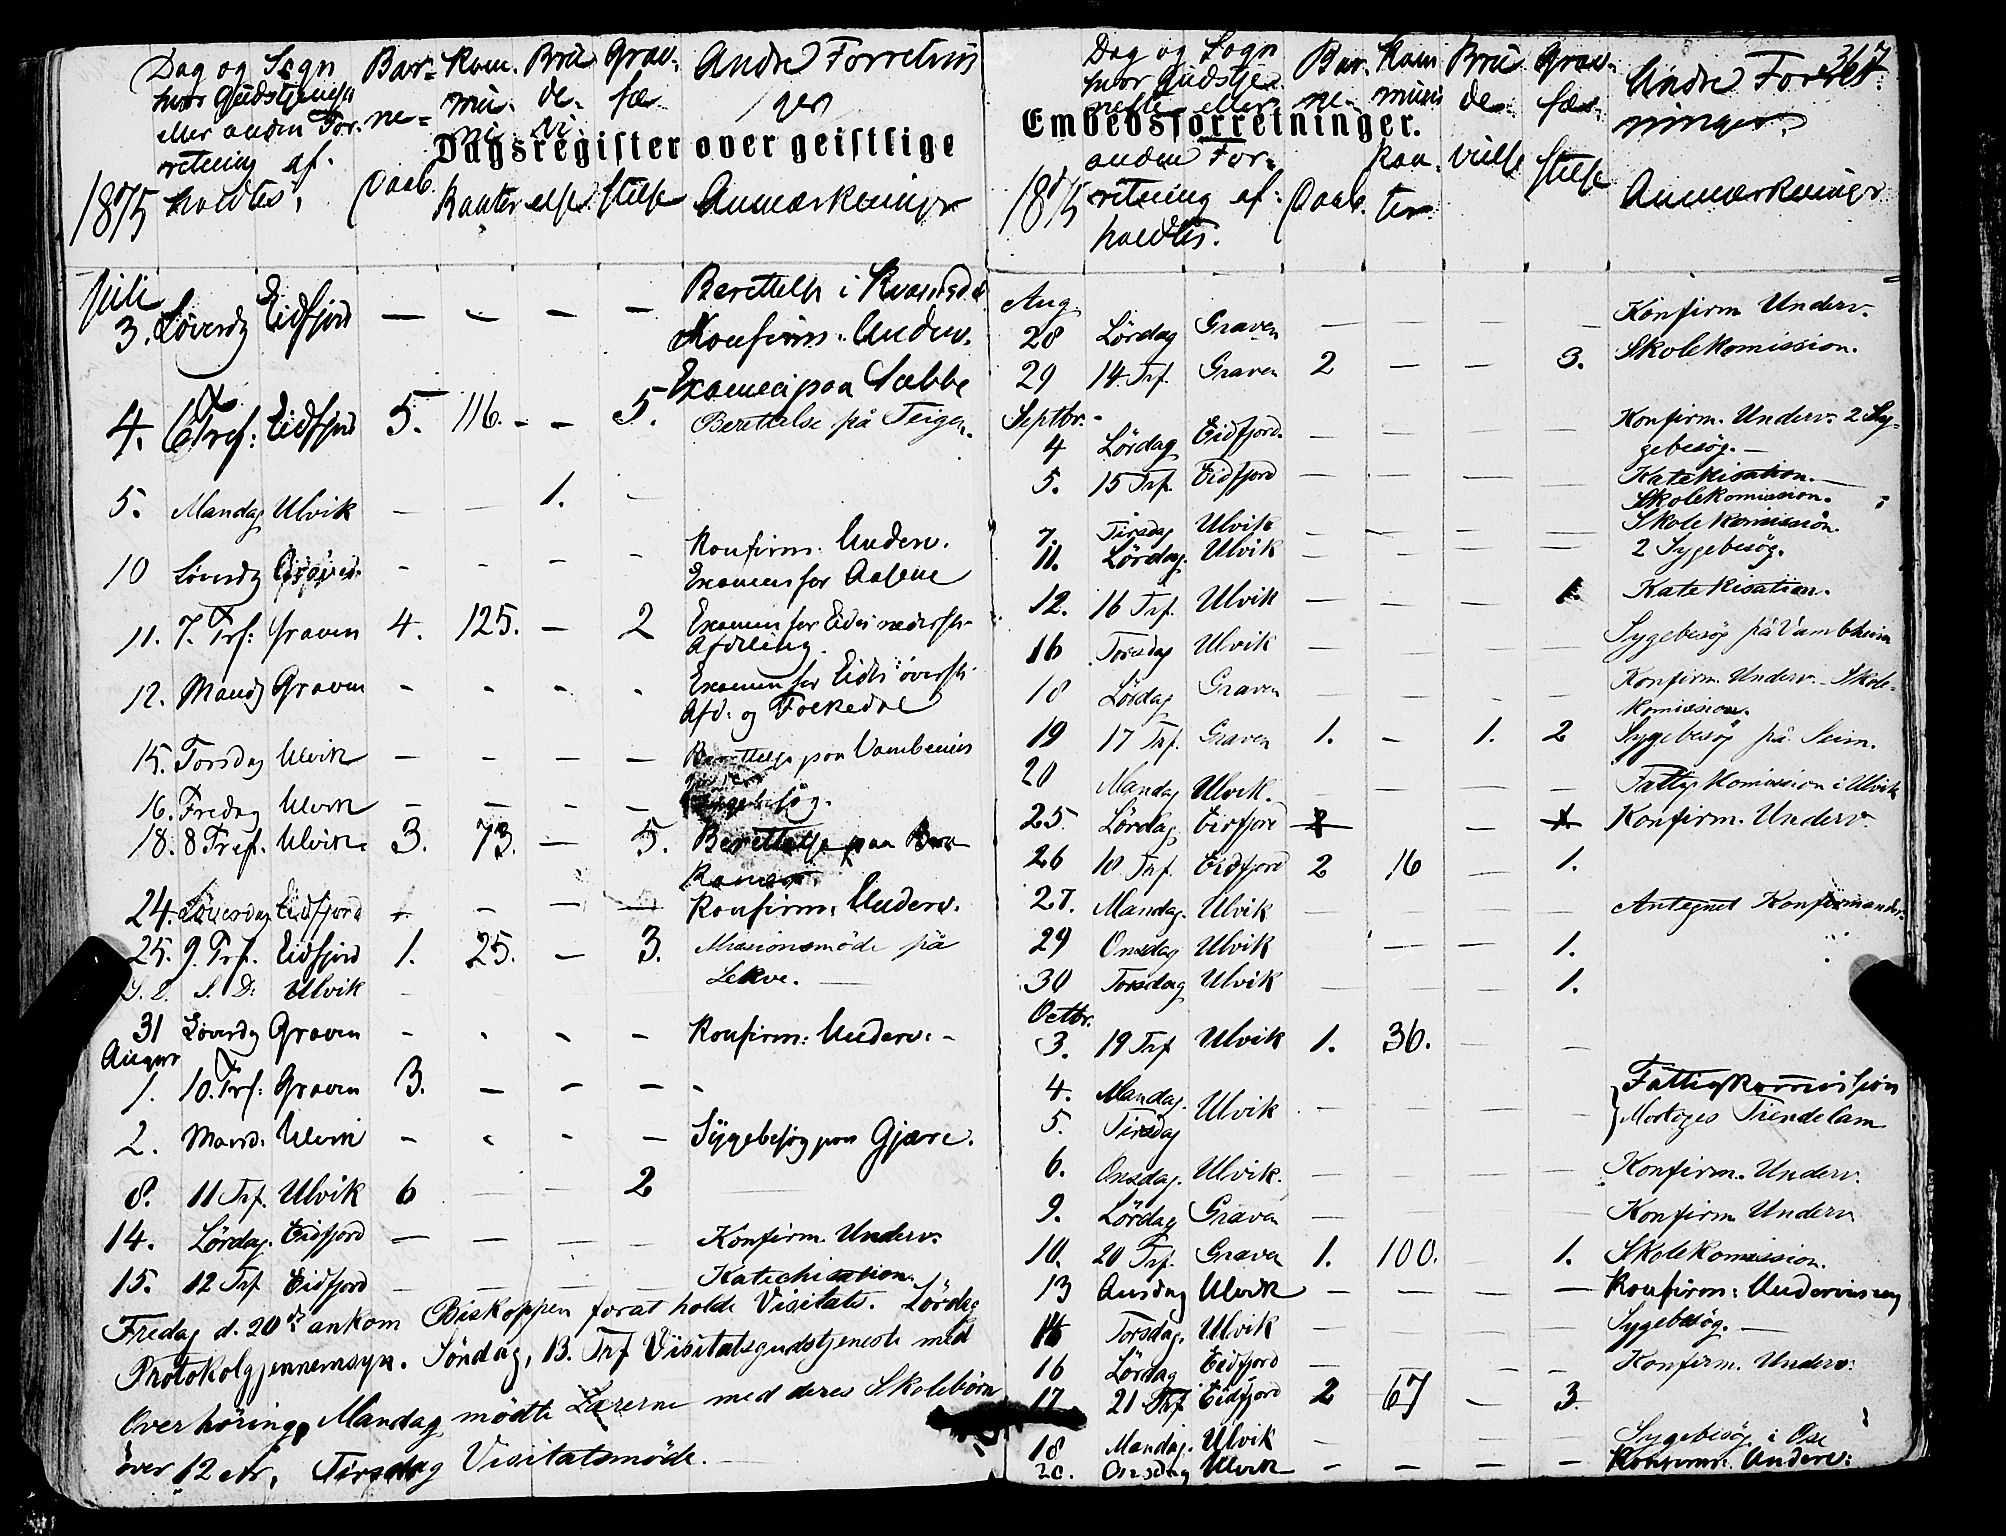 Dag og Sogn hvor Gudstjeneste eller anden Forretning af- holdtes. Barne- Daab. Kommunikanter Brudevielse Gravfæstelse Andre Forretninger
Dagsregister over geistlige
1875 Anmærkninger
Juli
3. Løverdg Eidfjord — — — — Berettelse i
Konfirm: Underv.
4. 6 Tref: Eidfjord 5. 116. - - 5. Examen paa Sæbbe
Berettelse på Teigen.
5. Mandag Ulvik — — 1. —
10 Løverdg - - - - Konfirm: Underv.
Examen for Aasene
11. 7. Trf: Graven 4. 125. — 2 Examen for Eides nederste
Afdeling.
12. Mandg Graven - - - - Examen for Eides øverste
Afd. og Folkedal
15. Torsdag Ulvik — — — — Berettelse paa Vambheim
16. Fredag Ulvik — — — — Sygebesøg.
18. 8 Tref. Ulvik 3. 73. — 5. Berettelse paa
24. Løverdag Eidfjord - - - Konfirm: Underv.
25. 9. Trf. Eidfjord 1. 25. — 3. Missionsmöde på
S. D. S. D: Ulvik Lekve. —
31 Løverdg Graven - - - - Konfirm: Underv: -
August
1. 10. Trf: Graven 3. — - — -
2. Mand: Ulvik - - - — Sygebesøg paa Gjære.
8. 11 Trf. Ulvik 6 — — 2 —
14. Lördag. Eidfjord — — — — Konfirm. Underv.
15. 12 Trf Eidfjord — — — — Katechisation.
Fredag d. 20de ankom Biskoppen forat holde Visitats. Lördag
Protokolgjennemsyn. Söndag, 13. Trf Visitatsgudstjeneste med
Overhöring, Mandag mödte Lærerne med deres Skolebörn
över 12 Aar, Tirsdag Visitatsmöde. —
367
Dag og Sogn hvor Gudstjeneste eller anden Forretning af- holdtes. Barne- Daab. Kommunikanter Brudevielse Gravfæstelse Andre Forretninger
Embedsforretninger.
1875 Anmærkninger
Aug
28 Lördag Graven — — — — Konfirm Underv.
29 14 Trf. Graven 2 — — 3. Skolekomission.
Septbr. -
4 Lördag Eidfjord. — — — — Konfirm. Underv. 2 Sy-
gebesög. —
5. 15 Trf. Eidfjord — — — — Katekisation. —
Skolekomission.
7. Tirsdag Ulvik — — — — Skolekomission.
11. Lördag. Ulvik — — — — 2 Sygebesög.
12. 16 Trf. Ulvik — — — 1 Katekisation.
16 Torsdag Ulvik — — — — Sygebesög på Vambheim
18 Lördag Graven — — — — Konfirm. Underv. - Skole-
komission.
19 17 Trf. Graven 1. — 1. 2 Sygebesög på Seim.
20 Mandag Ulvik. — — — — Fattigkomission i Ulvik
25. Lördag Eidfjord — Konfirm. Underv.
26 18 Trf. Eidfjord 2 16 — 1.
27. Mandag. Ulvik — — — — Antegnet Konfirmander.
29 Onsdag Ulvik — — 1.
30 Torsdag Ulvik — — — 1.
Octbr.
3. 19 Trf Ulvik 1. 36. — —
4. Mandag. Fattigkommission
5. Tirsdag Ulvik — — — — Mortoges Tiendelam
6. Onsdag. Ulvik. — — — — Konfirm. Underv.
9. Lördag Graven — — — — Konfirm Underv
10. 20 Trf. Graven 1. 100. — 1. Skolekomission.
13 Onsdag Ulvik — — — — Konfirm: Underviisning
14 Torsdag. Ulvik — — — — Sygebesög. —
16 Lördag Eidfjord — — — — Konfirm. Underv:
17 21 Trf Eidfjord 2 67 — 3.
18 Mandag. Ulvik — — — — Sygebesög i Ose
20. Onsdag Ulvik — — — — Konfirm: Underv: